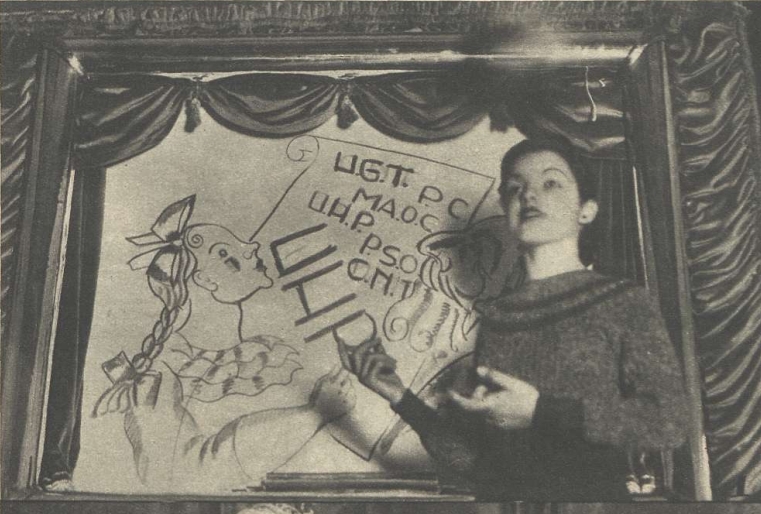 U.G.T. P.C
M.A.O.C
U.H.P
P.S.O
C.N.T
UHP